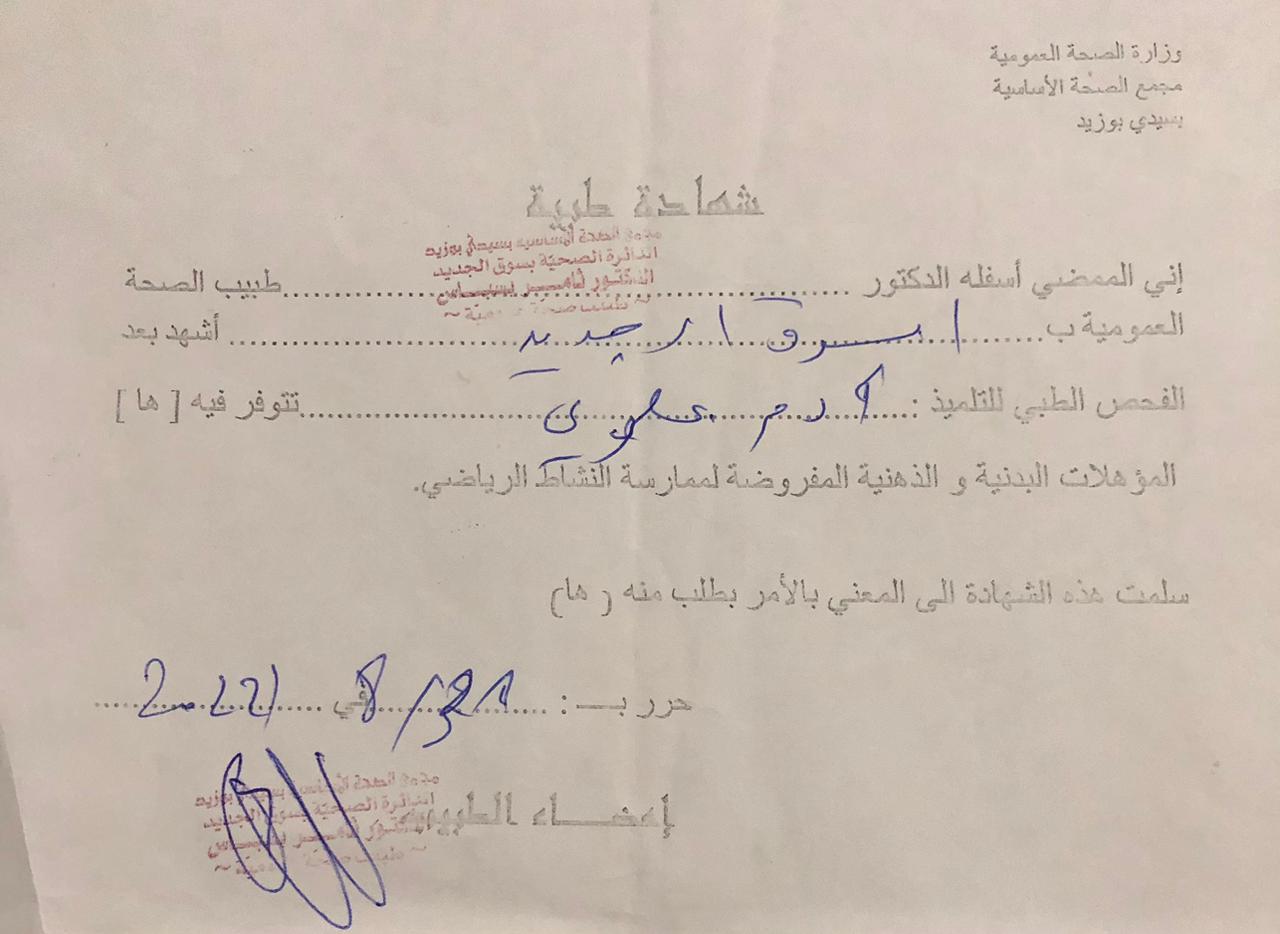 وزارة الصحة العمومية
مجمع الصحة الأساسية
بسيدي بوزيد
شهادة طبية
مجمع الصحة الأساسية بسيدي بوزيد
الدائرة الصحية بسوق الجديد
الدكتور ثامر بسباس
~ طبيب صحة عمومية ~
إني الممضي أسفله الدكتور ........................ طبيب الصحة
العمومية ب........................ أشهد بعد
الفحص الطبي للتلميذ :........................تتوفر فيه [ ها ]
المؤهلات البدنية و الذهنية المفروضة لممارسة النشاط الرياضي.
سلمت هذه الشهادة الى المعني بالأمر بطلب منه ( ها)
حرر بــــ : ........ في ........
إمضـــاء الطبيب
مجمع الصحة الأساسية بسيدي بوزيد
الدائرة الصحية بسوق الجديد
الدكتور ثامر بسباس
~ طبيب صحة عمومية ~